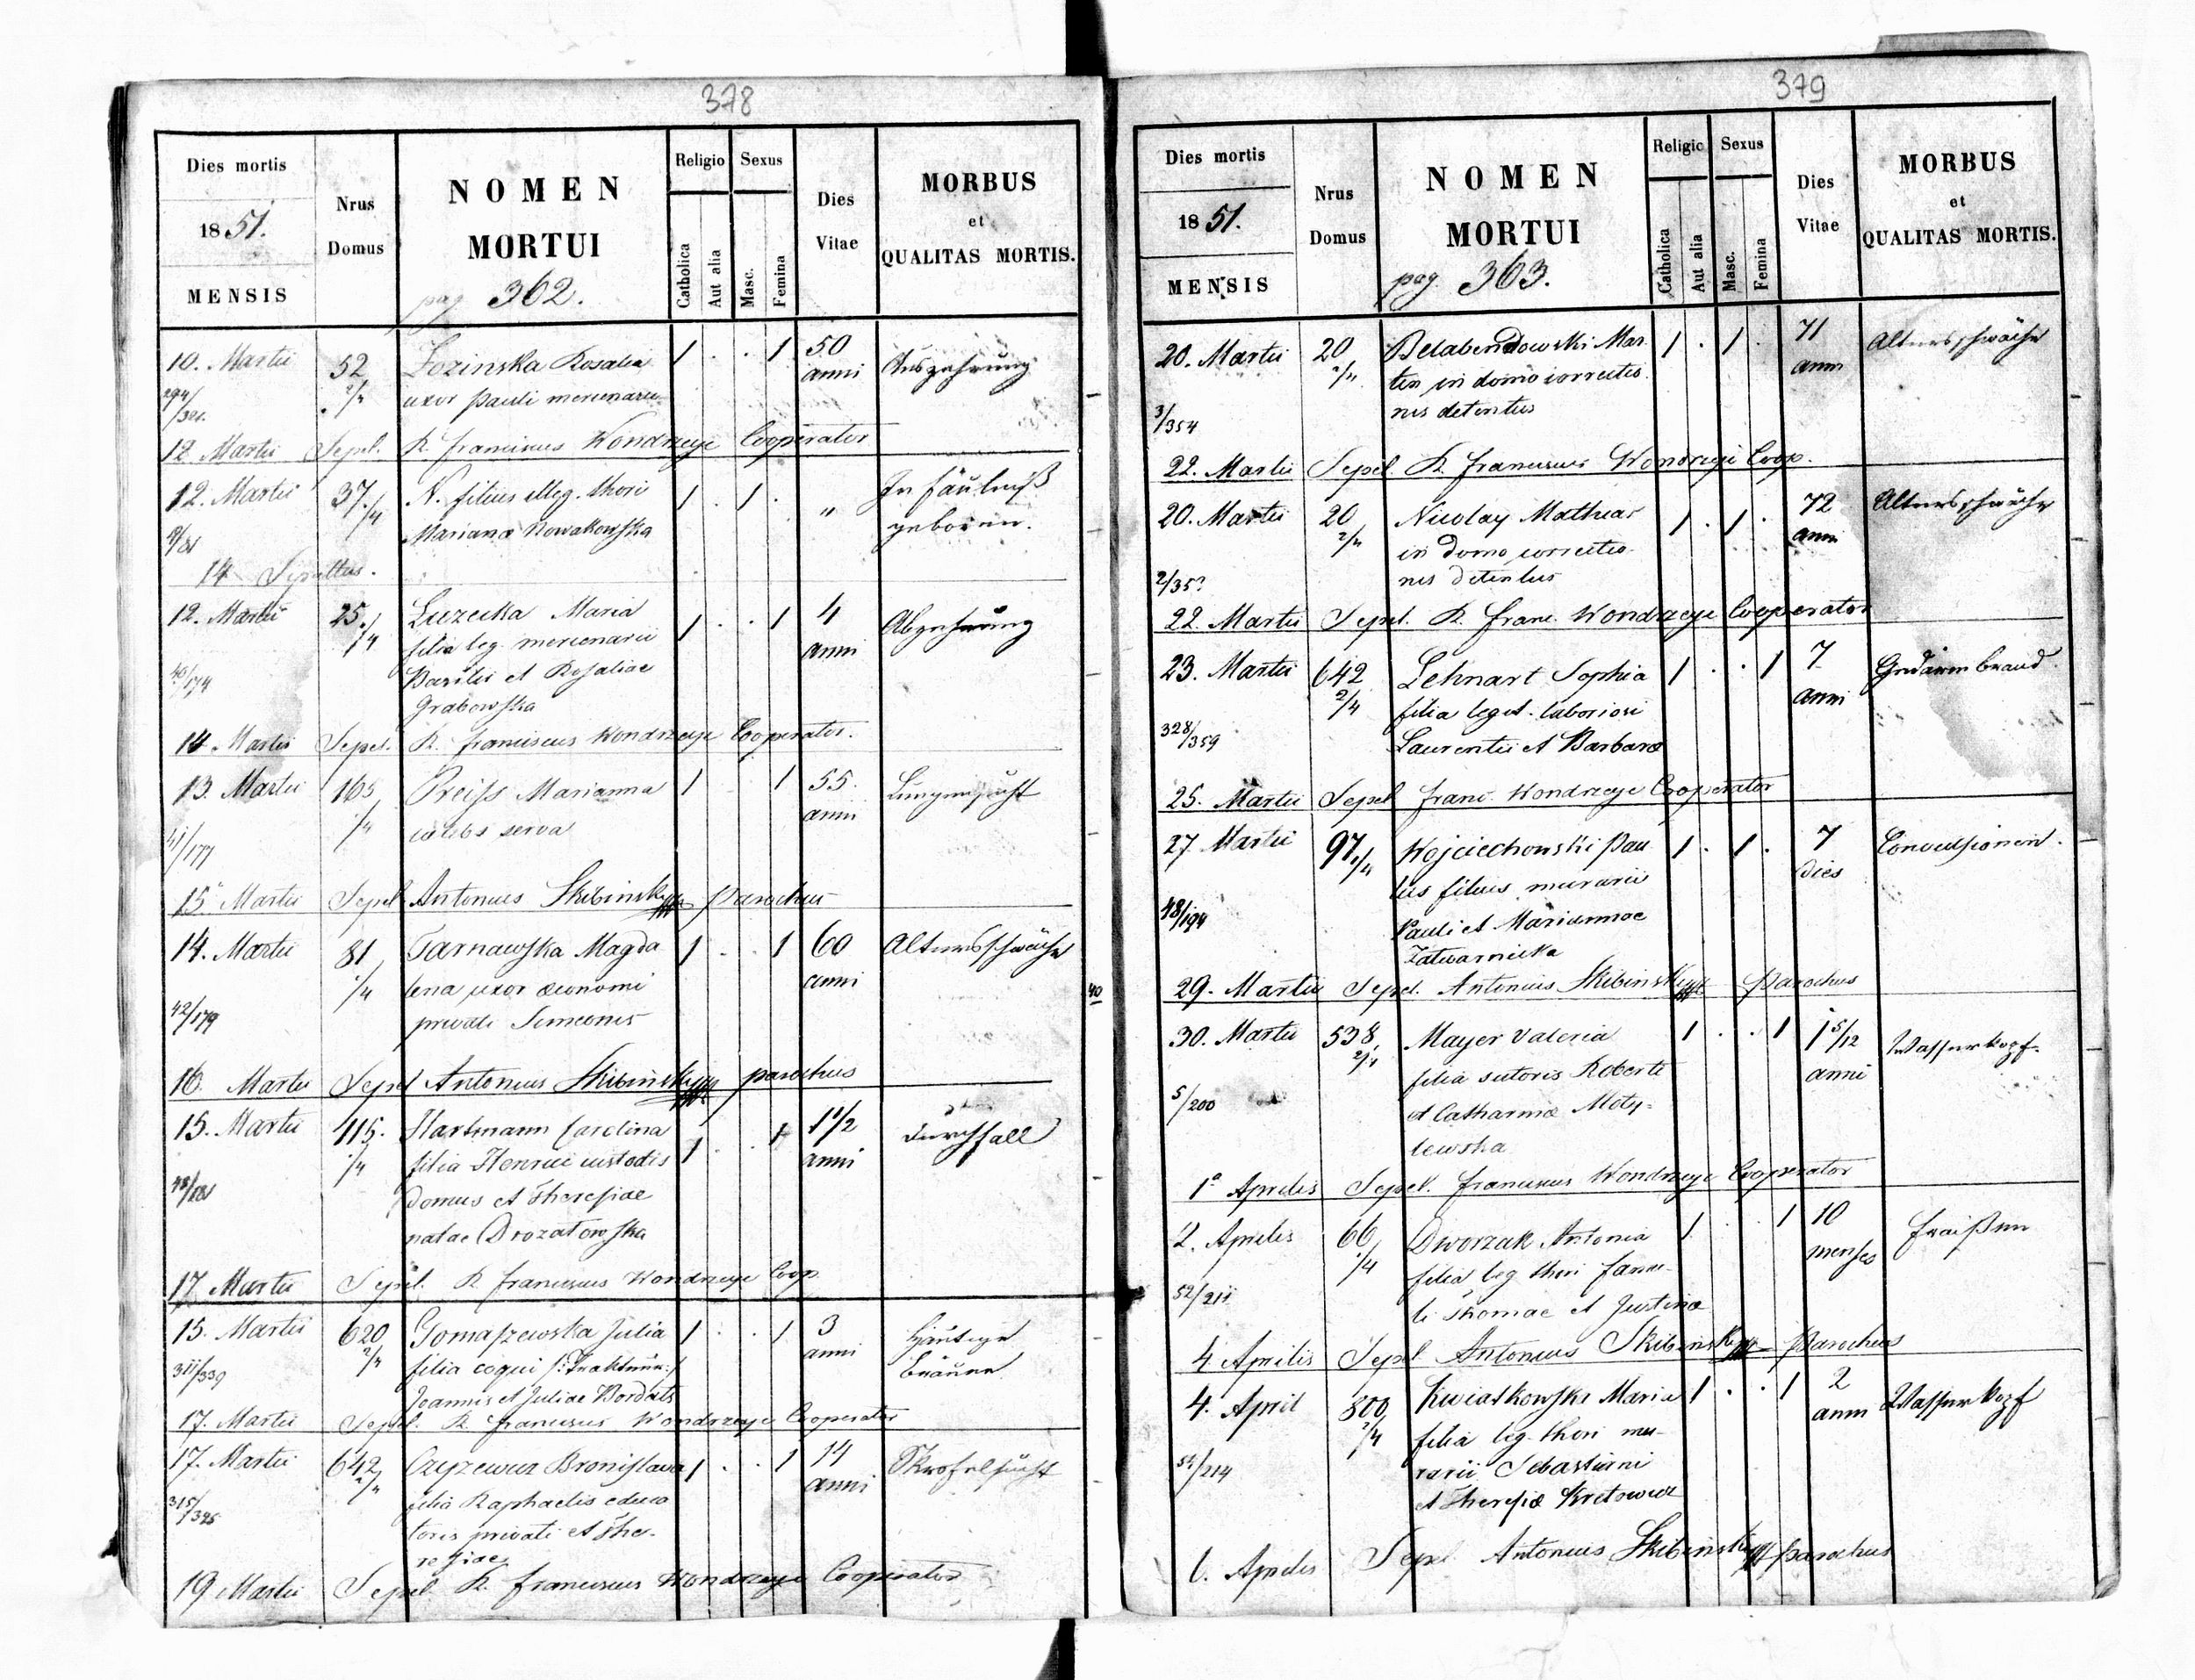 378
Dies mortis
1851.
MENSIS
Nrus Domus
NOMEN MORTUI
pag 362.
Religio
Catholica
Aut alia
Sexus
Masc.
Femina
Dies Vitae
MORBUS et QUALITAS MORTIS.
10. Martii 52 Łozinska Rosalia 1 . . 1 50 Auszehrung
2/4 uxor Pauli mercenarii anni
12. Martii Sepel. R. Franciscus Wondrzeje Cooperator
12. Martii 37. N. filius illeg. thori 1 . 1 . " In Fäulniß
/4 Mariana Nowakowska geboren.
9/81
14 Sepultus.
12. Martii 25. Luzecka Maria 1 . . 1 4 Abzehrung
/4 filia leg. mercenarii anni
40/174 Basilii et Rosaliae
Grabowska
14 Martii Sepel. R. Franciscus Wondrzeje Cooperator.
13. Martii 165 Preiss Marianna 1 1 55. Lungensucht
/4 caelebs serva anni
41/177
15 Martii Sepel Antonius Skibinsky parochus
14. Martii 81 Tarnawska Magda 1 . . 1 60 Altersschwäche
/4 lena uxor oeconomi anni
42/179 privati Simeonis
16. Martii Sepel Antonius Skibinsky parochus
15. Martii 115. Hartmann Carolina 1 . . 1 1 1/2 Durchfall
/4 filia Henrici custodis anni
43/181 domus et Theresiae
natae Drozatowska
17. Martii Sepel. R. Franciscus Wondrzeje Coop
15. Martii 620 Tomaszewska Julia 1 . . 1 3 Häutige
2/4 filia coqui /: Trakteur :/ anni Bräune
311/339 Joannis et Juliae Bordats
17. Martii Sepel. R. Franciscus Wondrzeje Cooperator
17. Martii 642 Czyzewicz Bronislava 1 . . 1 14 Skrofelsucht
2/4 filia Raphaelis educa anni
toris privati et The-
resiae
19 Martii Sepel. R. Franciscus Wondrzeje Cooperator
40
379
Dies mortis
1851.
MENSIS
Nrus Domus
NOMEN MORTUI
pag. 363.
Religio
Catholica
Aut alia
Sexus
Masc.
Femina
Dies Vitae
MORBUS et QUALITAS MORTIS.
20. Martii 20 Belabendowski Mar 1 . 1 . 71 Altersschwäche
2/4 tin in domo correctio anni
3/354 nis detentus
22. Martii Sepel. R. Franciscus Wondrzeje Coop.
20. Martii 20 Nicolay Mathias 1 . 1 . 72 Altersschwäche
2/4 in domo correctio anni
nis detentus
22. Martii Sepel. R. Franc. Wondrzeje Cooperator
23. Martii 642 Lehnart Sophia 1 . . 1 7 Gedärmbrand.
2/4 filia legit. laboriosi anni
328/359 Laurentii et Barbara
25. Martii Sepel Franc. Wondrzeje Cooperator
27 Martii 97 Wojciechowski Pau 1 . 1 . 7 Convulsionen.
/4 lus filius murarii dies
48/194 Pauli et Mariannae
Zatwarnicka
29. Martii Sepel. Antonius Skibinsky Parochus
30. Martii 538 Mayer Valeria 1 . . 1 1 5/12 Wasserkopf.
2/4 filia sutoris Roberti anni
5/200 et Catharina Moty-
lewska
1a Aprilis Sepel. Franciscus Wondrzeje Cooperator
2. Aprilis 66 Dworzak Antonia 1 . . 1 10 Fraißen
/4 filia leg thori famu- menses
52/211 li Thomae et Justina
4 Aprilis Sepel Antonius Skibinsky Parochus
4. April 800 Kwiatkowska Maria 1 . . 1 2 Wasserkopf
2/4 filia leg. thori mu- anni
/214 rarii Sebastiani
et Theresia Kretowicz
6. Aprilis Sepel Antonius Skibinsky parochus